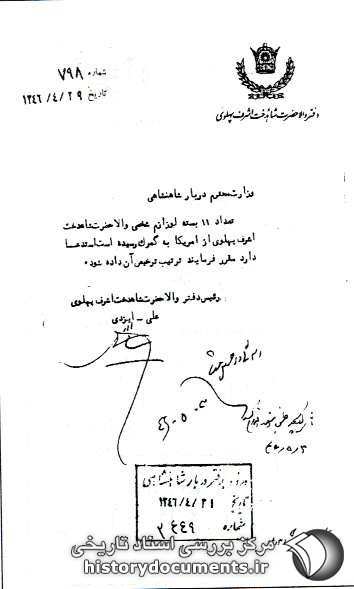 شماره ۷۹۸
تاریخ ۱۳۴۶/۴/۲۹
دفتر والاحضرت شاهدخت اشرف پهلوی
وزارت محترم دربار شاهنشاهی
تعداد ۱۱ بسته لوازم شخصی والاحضرت شاهدخت
اشرف پهلوی از امریکا به گمرک رسیده است استدعا
دارد مقرر فرمایند ترتیب ترخیص آن داده شود.
رئیس دفتر والاحضرت شاهدخت اشرف پهلوی
علی - ایزدی
ورود بدفتر دربار شاهنشاهی
تاریخ ۱۳۴۶/۴/۳۱
شماره
مرکز بررسی اسناد تاریخی
historydocuments.ir